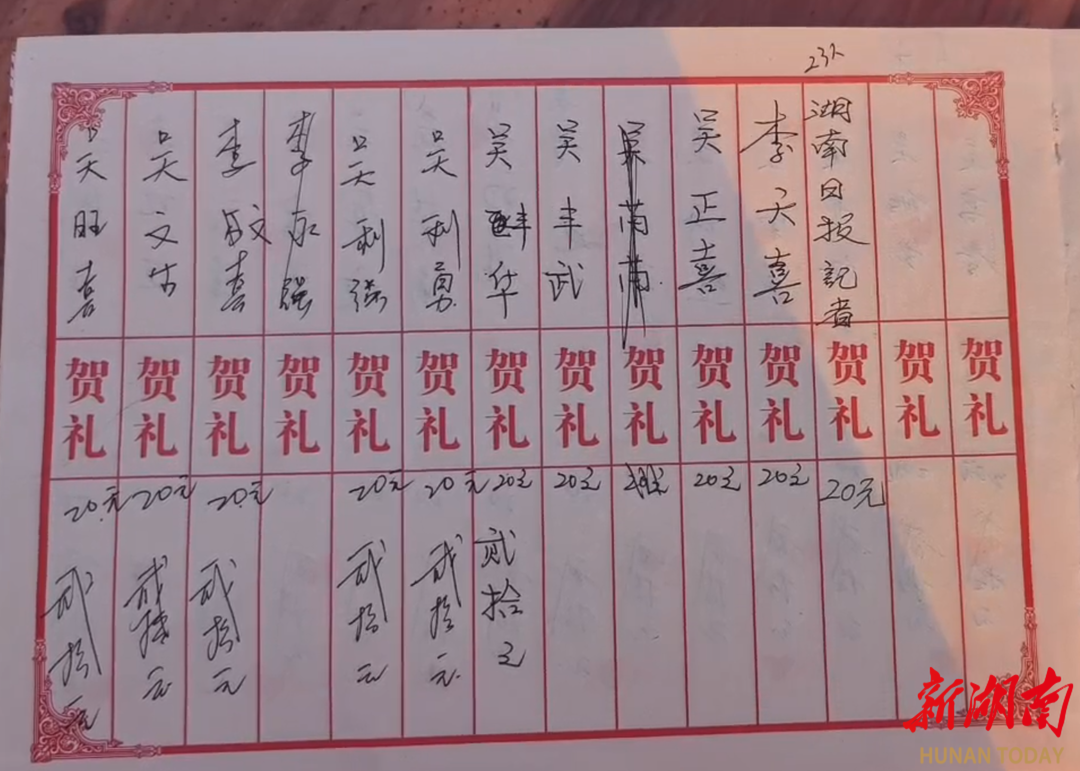 23人
湖南日报記者
李天喜
吴正喜
吴丰武
吴华
吴利勇
吴利强
李永强
李成喜
吴文
吴旺喜
贺礼
贺礼
贺礼
贺礼
贺礼
贺礼
贺礼
贺礼
贺礼
贺礼
贺礼
贺礼
贺礼
贺礼
20元
20元
20元
20元
20元
20元
20元
20元
20元
20元
贰拾元
贰拾元
贰拾元
贰拾元
贰拾元
贰拾元
新湖南
HUNAN TODAY